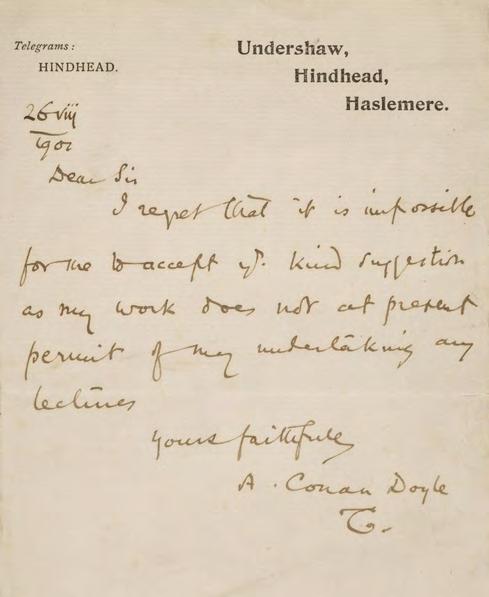 Telegrams:
HINDHEAD.
Undershaw,
Hindhead,
Haslemere.
26 viii
Dear Sir
I regret that it is impossible
for me to accept yr. kind suggestion
as my work does not at present
permit of my undertaking any
lectures
Yours faithfully
A. Conan Doyle